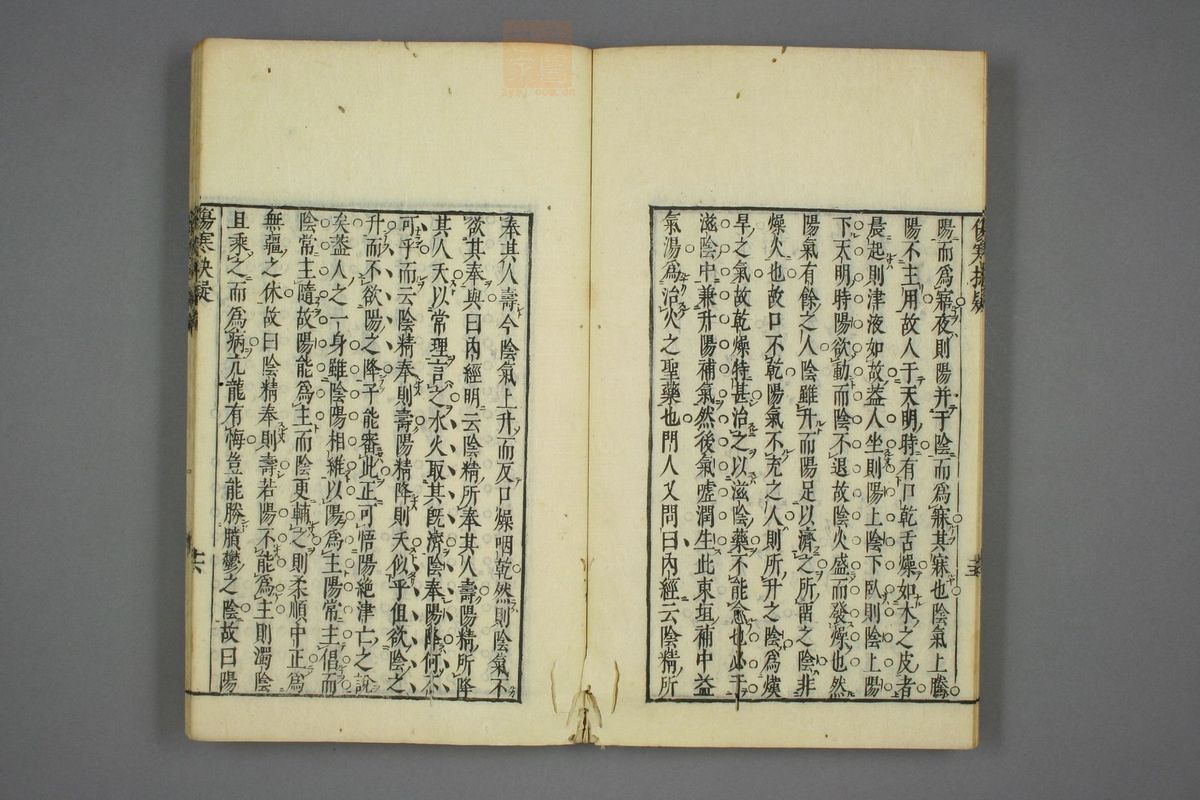 傷寒抉疑
陽而為寤夜則陽并于陰而為寐其寐也陰氣上騰
陽不主用故人于天明時有口乾舌燥如木之皮者
晨起則津液如故蓋人坐則陽上陰下臥則陰上陽
下天明時陽欲動而陰不退故陰火盛而發燥也然
陽氣有餘之人陰雖升而陽足以濟之所留之陰非
燥火也故口不乾陽氣不充之人則所升之陰為燥
旱之氣故乾燥特甚治之以滋陰藥不能愈也必于
滋陰中兼升陽補氣然後氣噓潤生此東垣補中益
氣湯為治火之聖藥也門人又問曰內經云陰精所
奉其人壽今陰氣上升而反口燥咽乾然則陰氣不
欲其奉與曰內經明云陰精所奉其人壽陽精所降
其人夭以常理言之水火取其既濟陰奉陽降何不
可乎而云陰精奉則壽陽精降則夭似乎但欲陰之
升而不欲陽之降子能審此正可悟陽絕津亡之說
矣蓋人之一身雖陰陽相維以陽為主陽常主倡而
陰常主隨故陽能為主而陰更輔之則柔順中正為
無疆之休故曰陰精奉則壽若陽不能為主則濁陰
且乘之而為病亢龍有悔豈能勝膹鬱之陰故曰陽
傷寒抉疑
十六